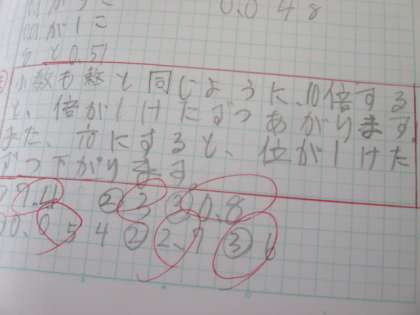 0.048
が1こ
と0.51
小数も整と同じように、10倍する
と、倍が1けたずつあがります。
また、1/10にすると、位が1けた
ずつ下がります
9.4 ② 3 ③ 0.8
54 ② 2.7 ③ 6